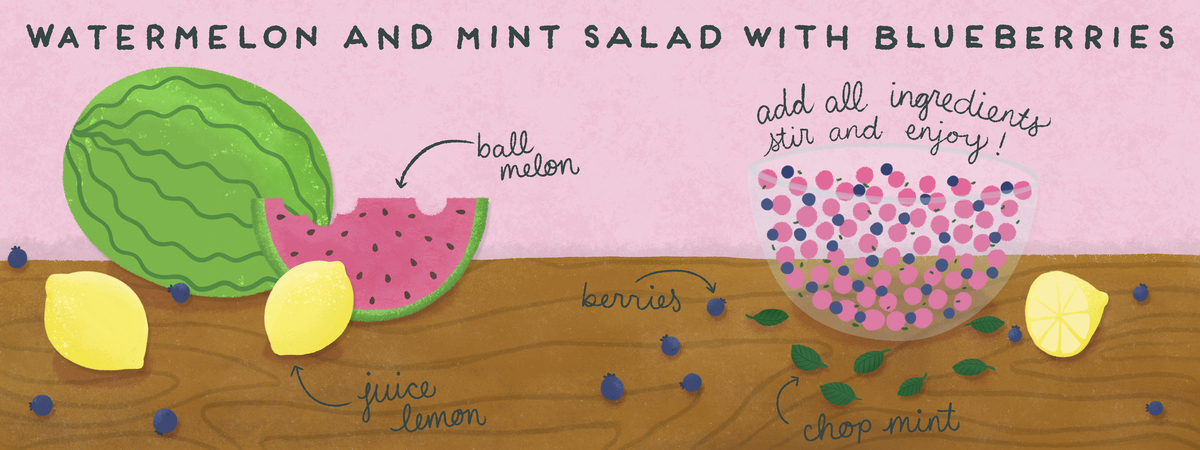 WATERMELON AND MINT SALAD WITH BLUEBERRIES
add all ingredients
stir and enjoy!
ball
melon
berries
juice
lemon
chop mint